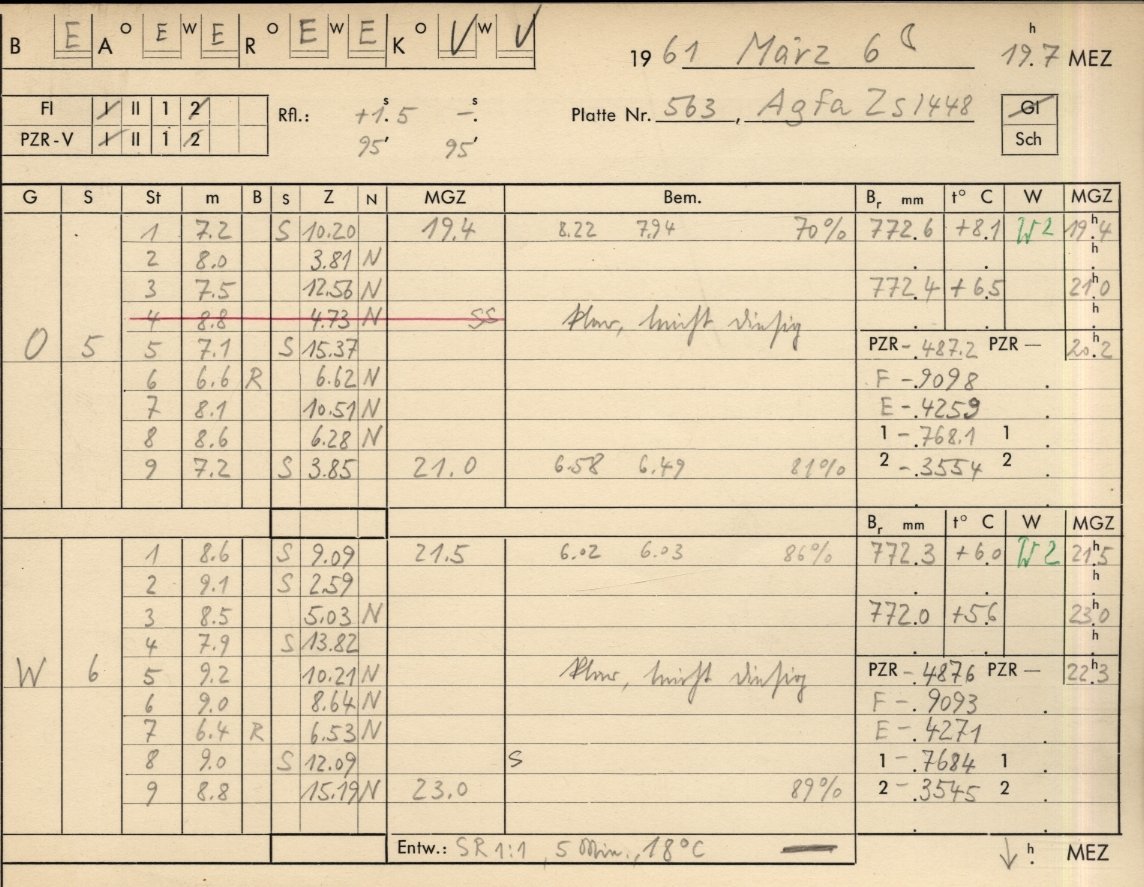 B E A O E W E R O E W E K O V W V
19 61 März 6 ☾ 19.7 h MEZ
Fl I II 1 2
PZR-V I II 1 2
Rfl.: +1.5 s –. s
95' 95'
Platte Nr. 563, Agfa ZS1448
Gl
Sch
G S St m B S Z N MGZ Bem. Br mm t° C W MGZ
1 7.2 S 10.20 19.4 8.22 7.94 70% 772.6 +8.1 W2 19.4 h
2 8.0 3.81 N h
3 7.5 12.56 N 772.4 +6.5 21.0 h
4 8.8 4.73 N SS klar, leicht diesig h
O 5 5 7.1 S 15.37 PZR-.487.2 PZR — 20.2 h
6 6.6 R 6.62 N F -.9098
7 8.1 10.51 N E -.4259
8 8.6 6.28 N 1 -.768.1 1
9 7.2 S 3.85 21.0 6.58 6.49 81% 2 -.3554 2
Br mm t° C W MGZ
1 8.6 S 9.09 21.5 6.02 6.03 86% 772.3 +6.0 W2 21.5 h
2 9.1 S 2.59 h
3 8.5 5.03 N 772.0 +5.6 23.0 h
4 7.9 S 13.82 h
W 6 5 9.2 10.21 N klar, leicht diesig PZR-.4876 PZR — 22.3 h
6 9.0 8.64 N F -.9093
7 6.4 R 6.53 N E -.4271
8 9.0 S 12.09 S 1 -.7684 1
9 8.8 15.19 N 23.0 89% 2 -.3545 2
Entw.: SR 1:1, 5 Min., 18°C h MEZ